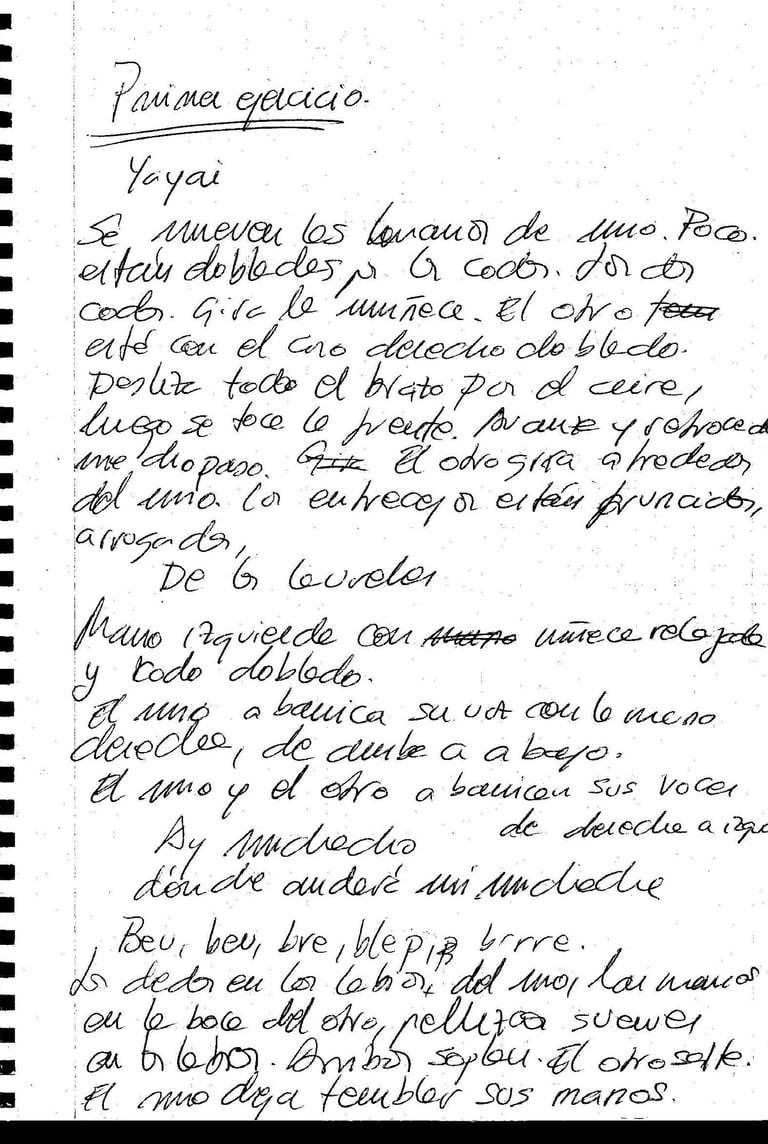 Primer ejercicio.
Yayai
Se mueven las manos de uno. Poco.
están doblados, los codos. Los dos
codos. Gira la muñeca. El otro
está con el codo derecho doblado.
Desliza todo el brazo por el aire,
luego se toca la frente. Avanza y retrocede
medio paso. El otro gira alrededor
del uno. Los entrecejos están fruncidos,
arrugados,
De
Mano izquierda con muñeca relajada
y codo doblado.
El uno abanica su voz con la mano
derecha, de arriba a abajo.
El uno y el otro abanican sus voces
de derecha a izqu
Ay muchacho
dónde andará mi muchacha
Beu, beu, bre, blep, brrre.
Los dedos en los labios, del uno, las manos
en la boca del otro, pellizcos suaves
en los labios. Ambos soplan. El otro salta.
El uno deja temblar sus manos.